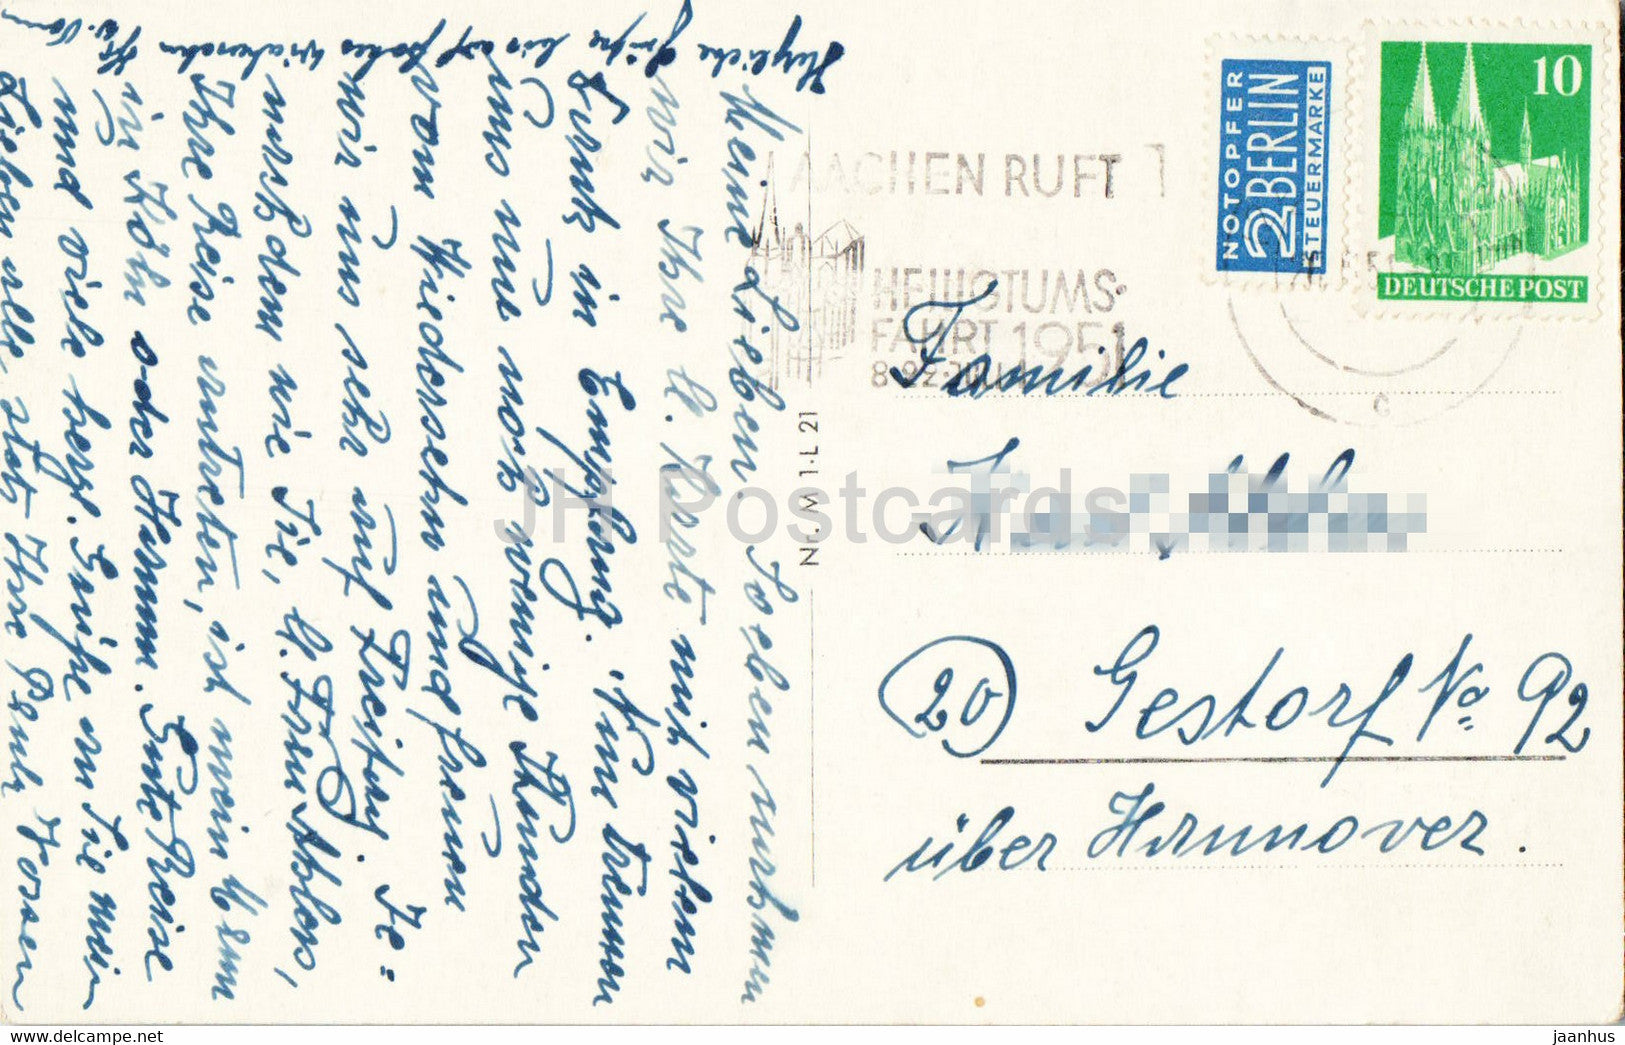 Meine Lieben. Soeben nahmen
wir Ihre l. Karte mit vielem
Dank in Empfang. Nun trennen
uns nur noch wenige Stunden
vom Wiedersehn und freuen
wir uns sehr auf Freitag. Je=
nachdem wie Sie, l. Frau Ahlers,
Ihre Reise antreten, ist mein Mann
in Köln oder Hamm. Gute Reise
und viele herzl. Grüße an Sie mein
Lieben alle stets Ihre
Herzliche Grüße bis auf frohes Wiedersehn
AACHEN RUFT
HEILIGTUMS-
FAHRT 1951
NOTOPFER
2 BERLIN
STEUERMARKE
10
DEUTSCHE POST
Familie
20 Gestorf No 92
über Hannover.
Nr. M 1 - L 21
JH Postcards
www.delcampe.net
jaanhus